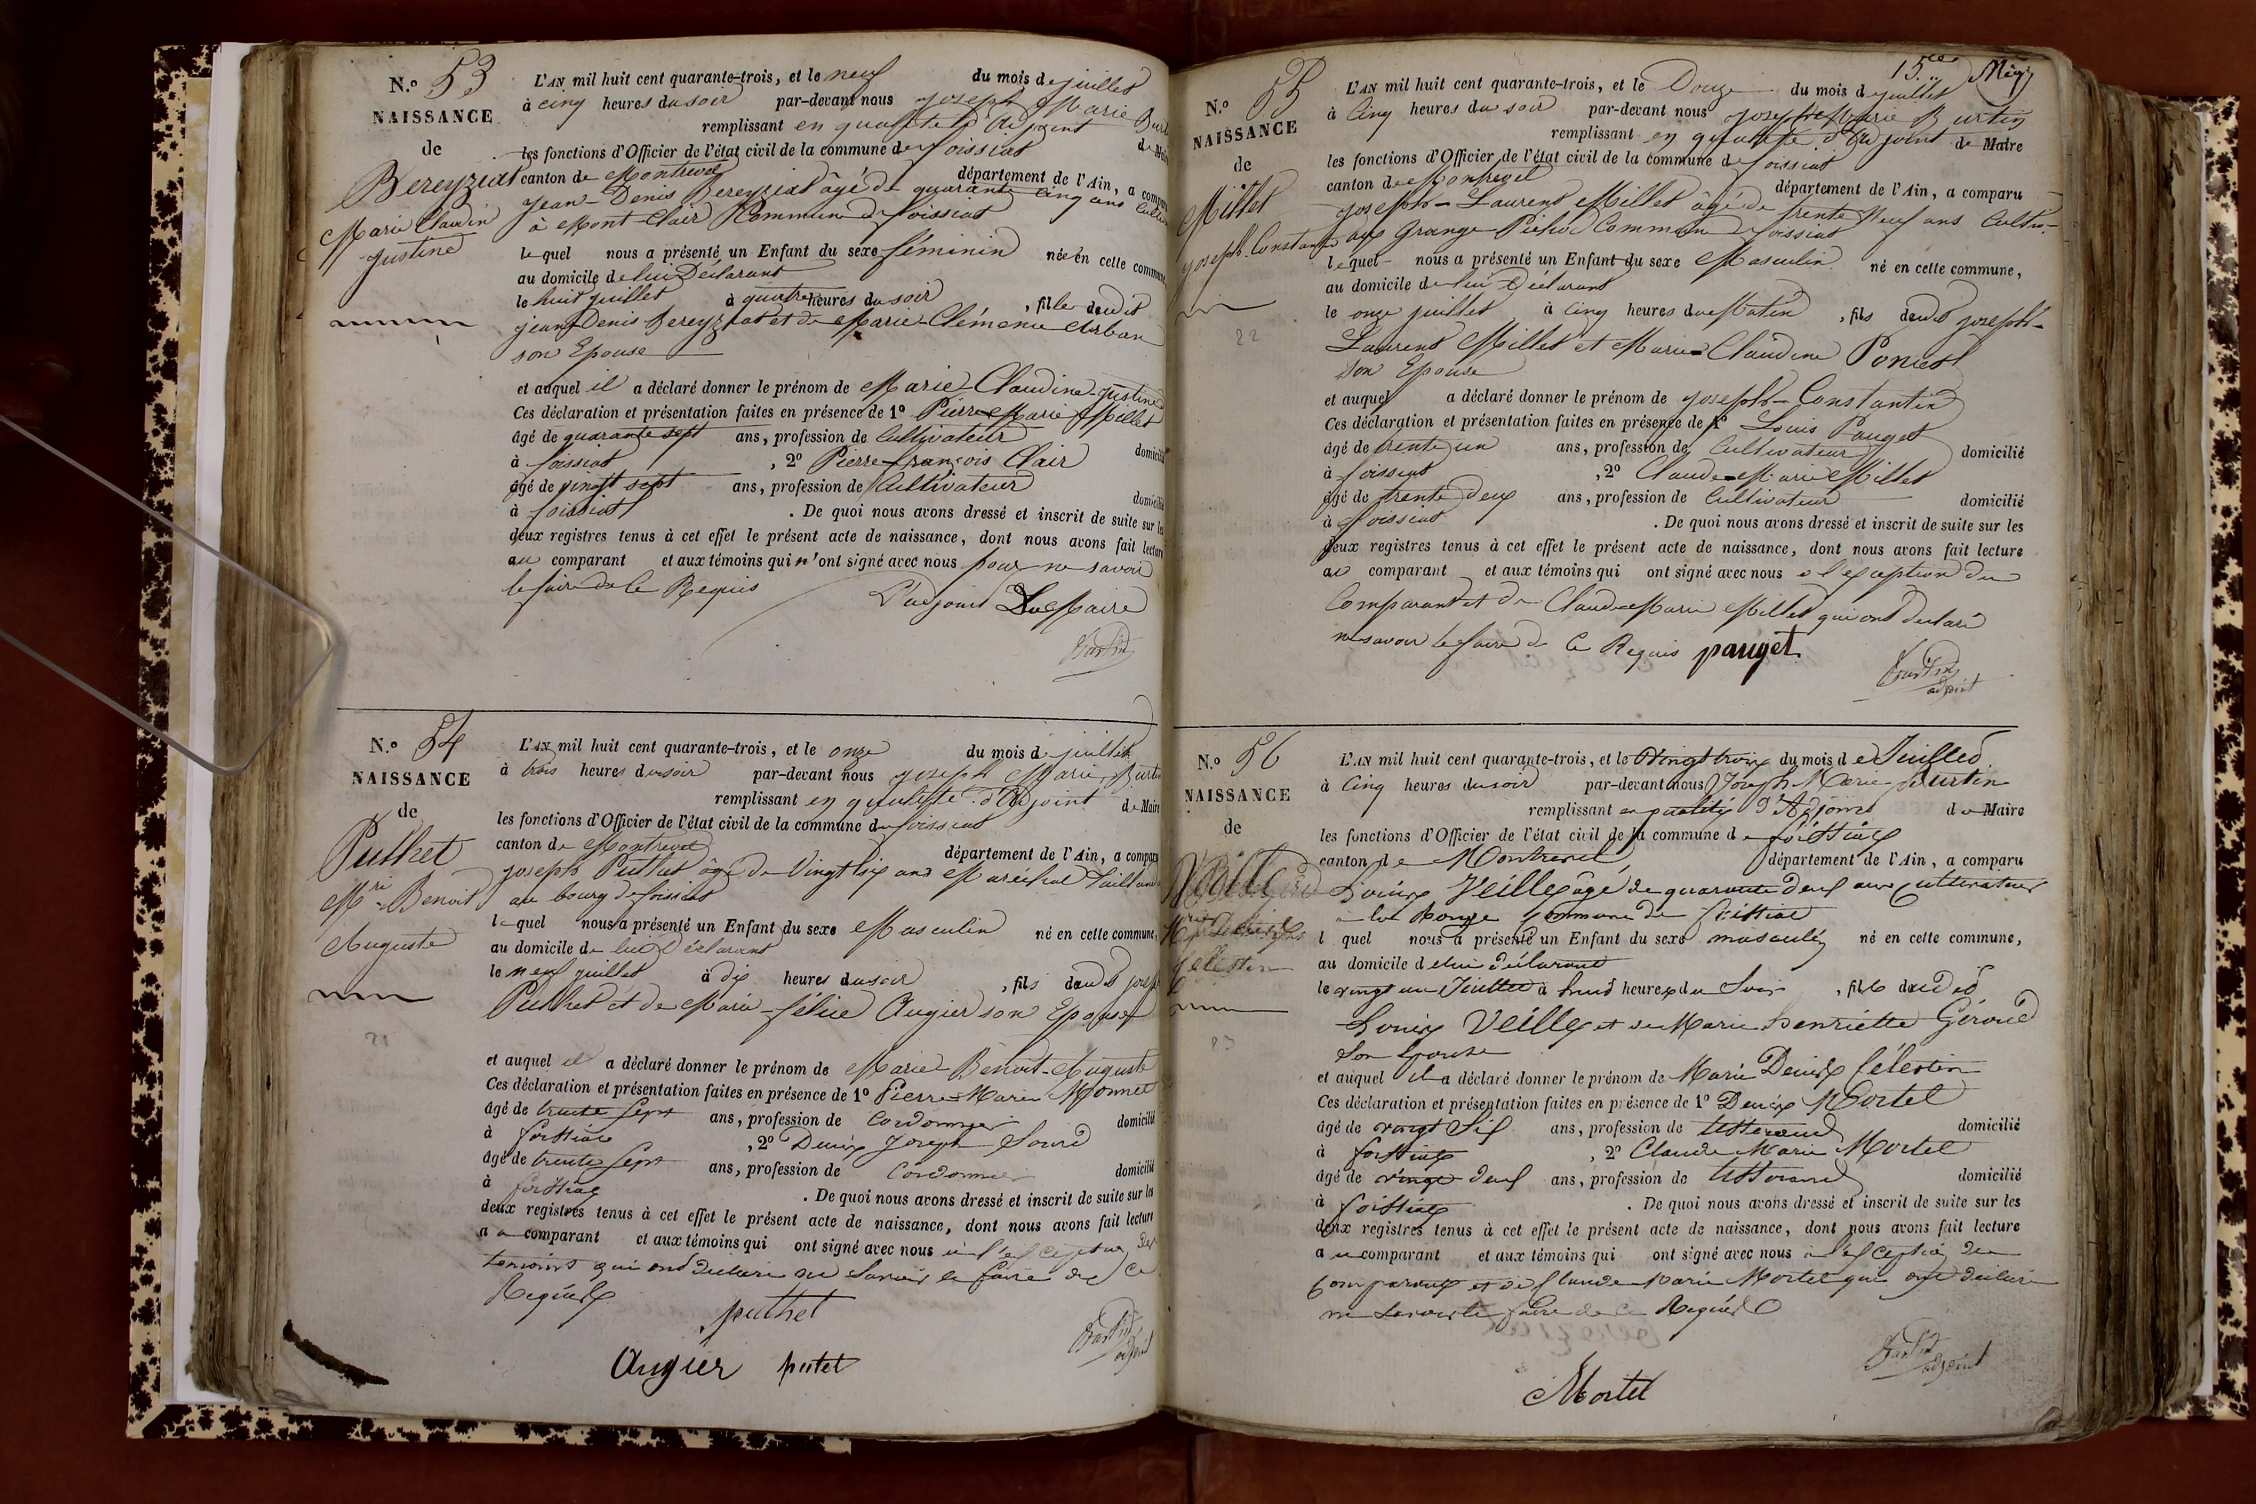 N.o 53
NAISSANCE
de
Bereyziat
Marie Claudin
Justine
L'AN mil huit cent quarante-trois, et le neuf du mois de juillet
à cinq heures du soir par-devant nous joseph Marie Burtin
remplissant en qualité d'Adjoint de Maire
les fonctions d'Officier de l'état civil de la commune de foissiat
canton de Montrevel département de l'Ain, a comparu
Jean-Denis Bereyziat âgé de quarante cinq ans
à Mont-Clair Commune de foissiat
lequel nous a présenté un Enfant du sexe féminin née en cette commune,
au domicile de lui Déclarant
le huit juillet à quatre heures du soir, fille dudit
jean Denis Bereyziat et de Marie-Clémence Arban
son Epouse
et auquel il a déclaré donner le prénom de Marie-Claudine-justine
Ces déclaration et présentation faites en présence de 1o Pierre-Marie Millet
âgé de quarante sept ans, profession de Cultivateur domicilié
à foissiat, 2o Pierre-françois Clair
âgé de vingt sept ans, profession de Cultivateur domicilié
à foissiat. De quoi nous avons dressé et inscrit de suite sur les
deux registres tenus à cet effet le présent acte de naissance, dont nous avons fait lecture
au comparant et aux témoins qui n'ont signé avec nous pour ne savoir
le faire de ce Requis L'adjoint Du Maire
Burtin
N.o 54
NAISSANCE
de
Puthet
M.rie Benoit
Auguste
L'AN mil huit cent quarante-trois, et le onze du mois de juillet
à trois heures du soir par-devant nous joseph Marie Burtin
remplissant en qualité d'Adjoint de Maire
les fonctions d'Officier de l'état civil de la commune de foissiat
canton de Montrevel département de l'Ain, a comparu
joseph Puthet âgé de Vingt six ans Maréchal Taillandier
au bourg de foissiat
lequel nous a présenté un Enfant du sexe Masculin né en cette commune,
au domicile de lui Déclarant
le neuf juillet à dix heures du soir, fils dudit joseph
Puthet et de Marie-félicie Augier son Epouse
et auquel il a déclaré donner le prénom de Marie-Benoit-Auguste
Ces déclaration et présentation faites en présence de 1o Pierre-Marie Monnet
âgé de trente sept ans, profession de Cordonnier domicilié
à foissiat, 2o Denis Joseph
âgé de trente sept ans, profession de Cordonnier domicilié
à foissiat. De quoi nous avons dressé et inscrit de suite sur les
deux registres tenus à cet effet le présent acte de naissance, dont nous avons fait lecture
au comparant et aux témoins qui ont signé avec nous à l'exception des
temoins qui ont declaré ne savoir le faire de ce
Requis
puthet
Burtin
adjoint
Augier putet
15.me
N.o 55
NAISSANCE
de
Millet
joseph-Constantin
22
L'AN mil huit cent quarante-trois, et le Douze du mois de juillet
à Cinq heures du soir par-devant nous joseph Marie Burtin
remplissant en qualité d'Adjoint de Maire
les fonctions d'Officier de l'état civil de la commune de foissiat
canton de Montrevel département de l'Ain, a comparu
joseph-Laurent Millet âgé de trente Neuf ans Cultiv-
aux Grange Commune de foissiat
lequel nous a présenté un Enfant du sexe Masculin né en cette commune,
au domicile de lui Déclarant
le onze juillet à cinq heures du Matin, fils dudit joseph-
Laurent Millet et Marie-Claudine Poncet
son Epouse
et auquel a déclaré donner le prénom de joseph-Constantin
Ces déclaration et présentation faites en présence de 1o Louis Pauget
âgé de trente un ans, profession de Cultivateur domicilié
à foissiat, 2o Claude-Marie Millet
âgé de trente deux ans, profession de Cultivateur domicilié
à foissiat. De quoi nous avons dressé et inscrit de suite sur les
deux registres tenus à cet effet le présent acte de naissance, dont nous avons fait lecture
au comparant et aux témoins qui ont signé avec nous à l'exception du
Comparant et de Claude Marie Millet qui ont declaré
ne savoir le faire de ce Requis pauget
Burtin
adjoint
N.o 56
NAISSANCE
de
Celestin
23
L'AN mil huit cent quarante-trois, et le vingt trois du mois de Juillet
à Cinq heures du soir par-devant nous Joseph Marie Burtin
remplissant en qualité d'Adjoint de Maire
les fonctions d'Officier de l'état civil de la commune de foissiat
canton de Montrevel département de l'Ain, a comparu
Louis Veille âgé de quarante deux ans Cultivateur
à la Ronge Commune de foissiat
lquel nous a présenté un Enfant du sexe masculin né en cette commune,
au domicile de lui déclarant
le vingt un Juillet à huit heures du Soir, fils dudit
Louis Veille et de Marie henriette Géroud
Son Epouse
et auquel il a déclaré donner le prénom de Marie Denis Célestin
Ces déclaration et présentation faites en présence de 1o Denis Mortel
âgé de vingt Six ans, profession de tisserand domicilié
à foissiat, 2o Claude Marie Mortel
âgé de vingt deux ans, profession de tisserand domicilié
à foissiat. De quoi nous avons dressé et inscrit de suite sur les
deux registres tenus à cet effet le présent acte de naissance, dont nous avons fait lecture
au comparant et aux témoins qui ont signé avec nous à l'exception du
Comparant et de Claude Marie Mortel qui ont declaré
ne savoir le faire de ce Requis
Burtin
adjoint
Mortel